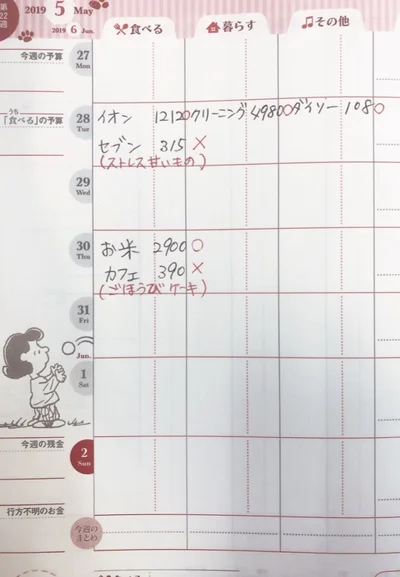 第22週
2019 5 May
2019 6 Jun.
食べる 暮らす その他
今週の予算
27 Mon
うち「食べる」の予算
28 Tue
イオン 1212○ クリーニング 4980○ ダイソー 108○
セブン 315 ×
(ストレス甘いもの)
29 Wed
30 Thu
お米 2900 ○
カフェ 390 ×
(ごほうびケーキ)
31 Fri
Jun.
1 Sat
今週の残金
2 Sun
行方不明のお金
今週のまとめ